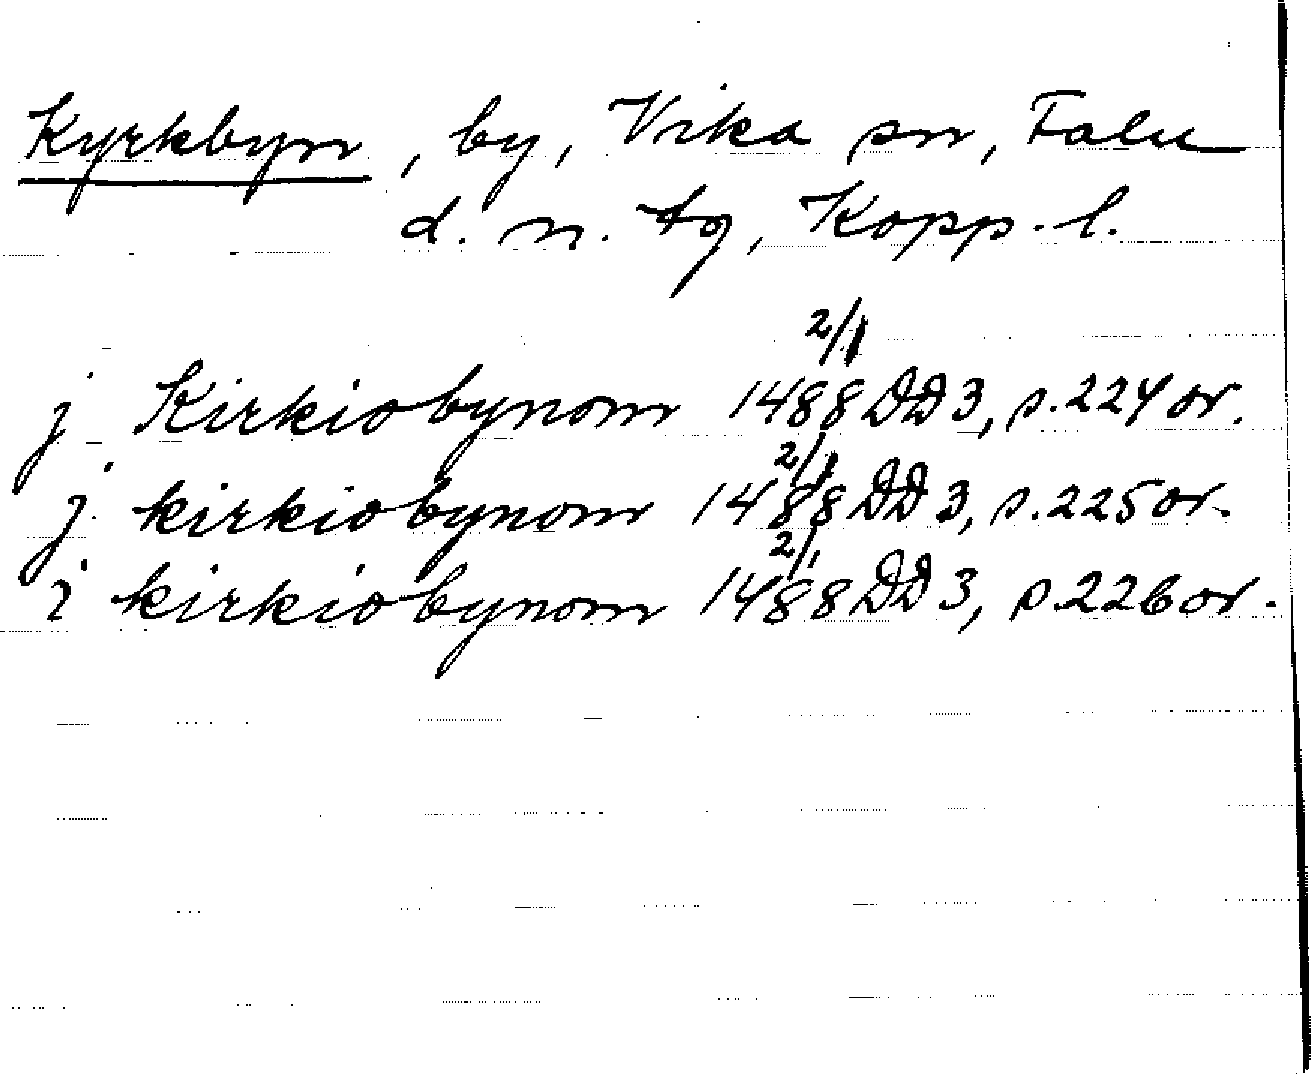 Kyrkbyn, by, Vika sn, Falu
d. n. tg, Kopp. l.
2/1
j Kirkiobynom 1488 DD 3, s. 224 or.
2/1
j kirkiobynom 1488 DD 3, s. 225 or.
2/1
i kirkiobynom 1488 DD 3, s. 226 or.